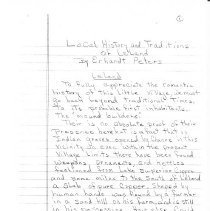 1
Local History and Traditions
of Leland
by Erhardt Peters
Leland
To fully appreciate the romantic
history of this little village, we must
go back beyond Traditional Times,
to its probable first inhabitants.
The mound builders.
There is no absolute proof of their
presence here but it is a fact that in
Indian graves opened up here in this
vicinity, so even within the present
village limits there have been found
weapons, ornaments, and kettles
fashioned from Lake Superior Copper
and some miles to the south of Leland
a slab of pure copper, shaped by
human hands was found by a farmer
in a sand hill on his farm and is still
in his possession.